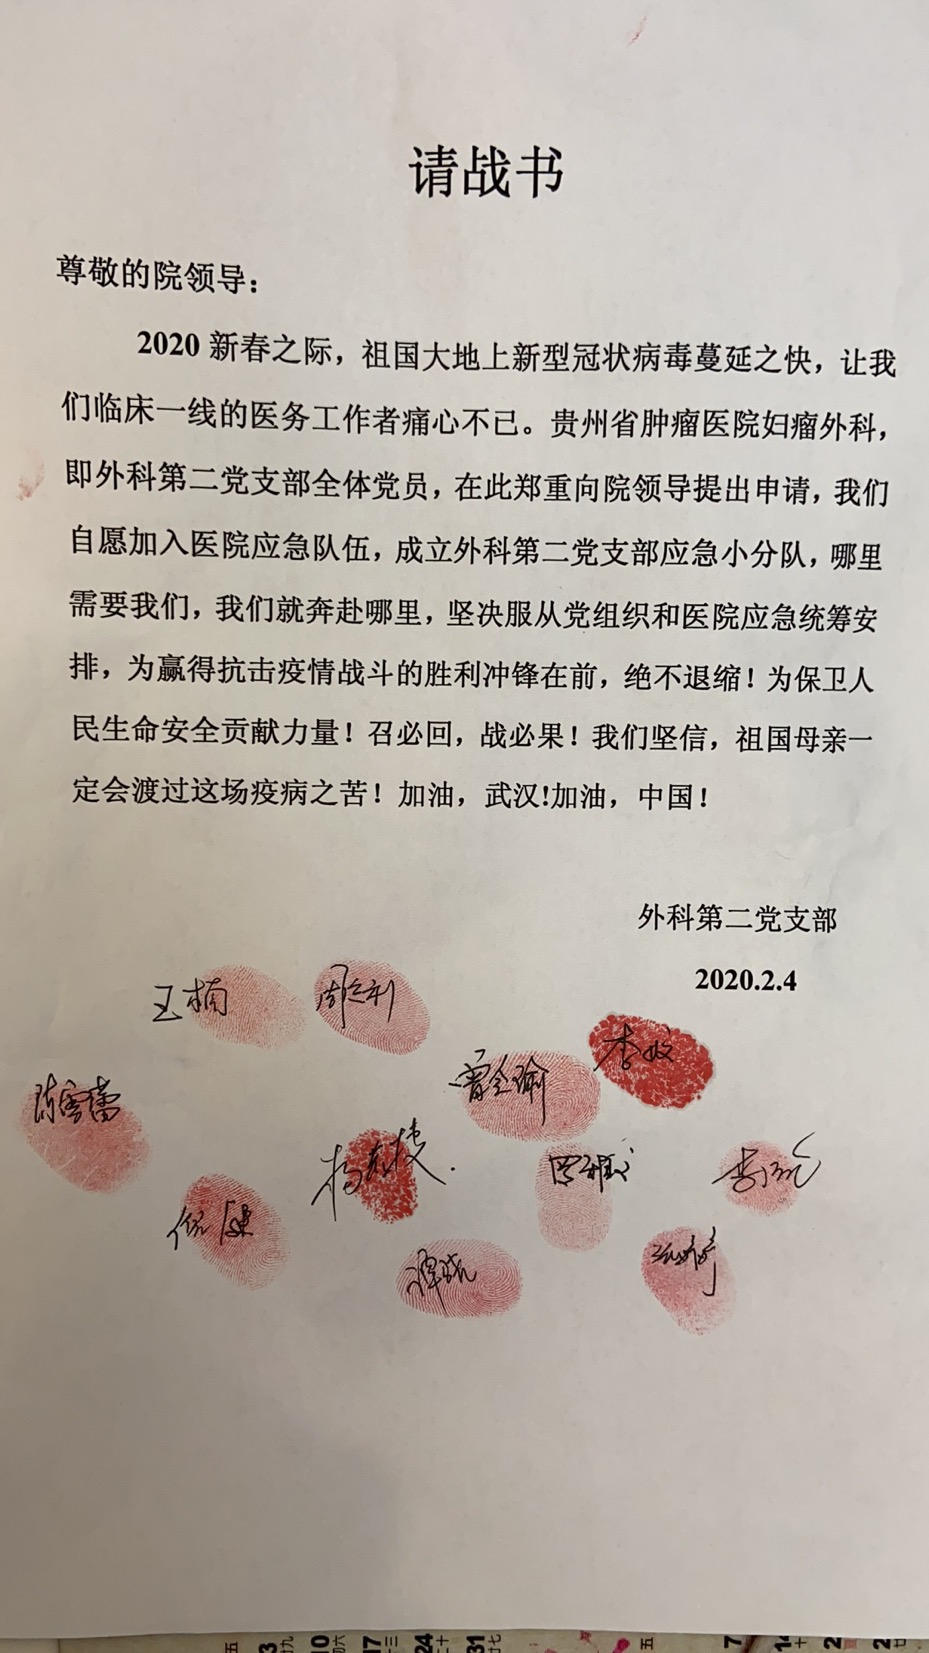 请战书
尊敬的院领导：
2020 新春之际，祖国大地上新型冠状病毒蔓延之快，让我
们临床一线的医务工作者痛心不已。贵州省肿瘤医院妇瘤外科，
即外科第二党支部全体党员，在此郑重向院领导提出申请，我们
自愿加入医院应急队伍，成立外科第二党支部应急小分队，哪里
需要我们，我们就奔赴哪里，坚决服从党组织和医院应急统筹安
排，为赢得抗击疫情战斗的胜利冲锋在前，绝不退缩！为保卫人
民生命安全贡献力量！召必回，战必果！我们坚信，祖国母亲一
定会渡过这场疫病之苦！加油，武汉!加油，中国！
外科第二党支部
2020.2.4
王楠
李姣
陈雪蕾
谭晓
五
3
10
17
24
31
五
7
14
2
2